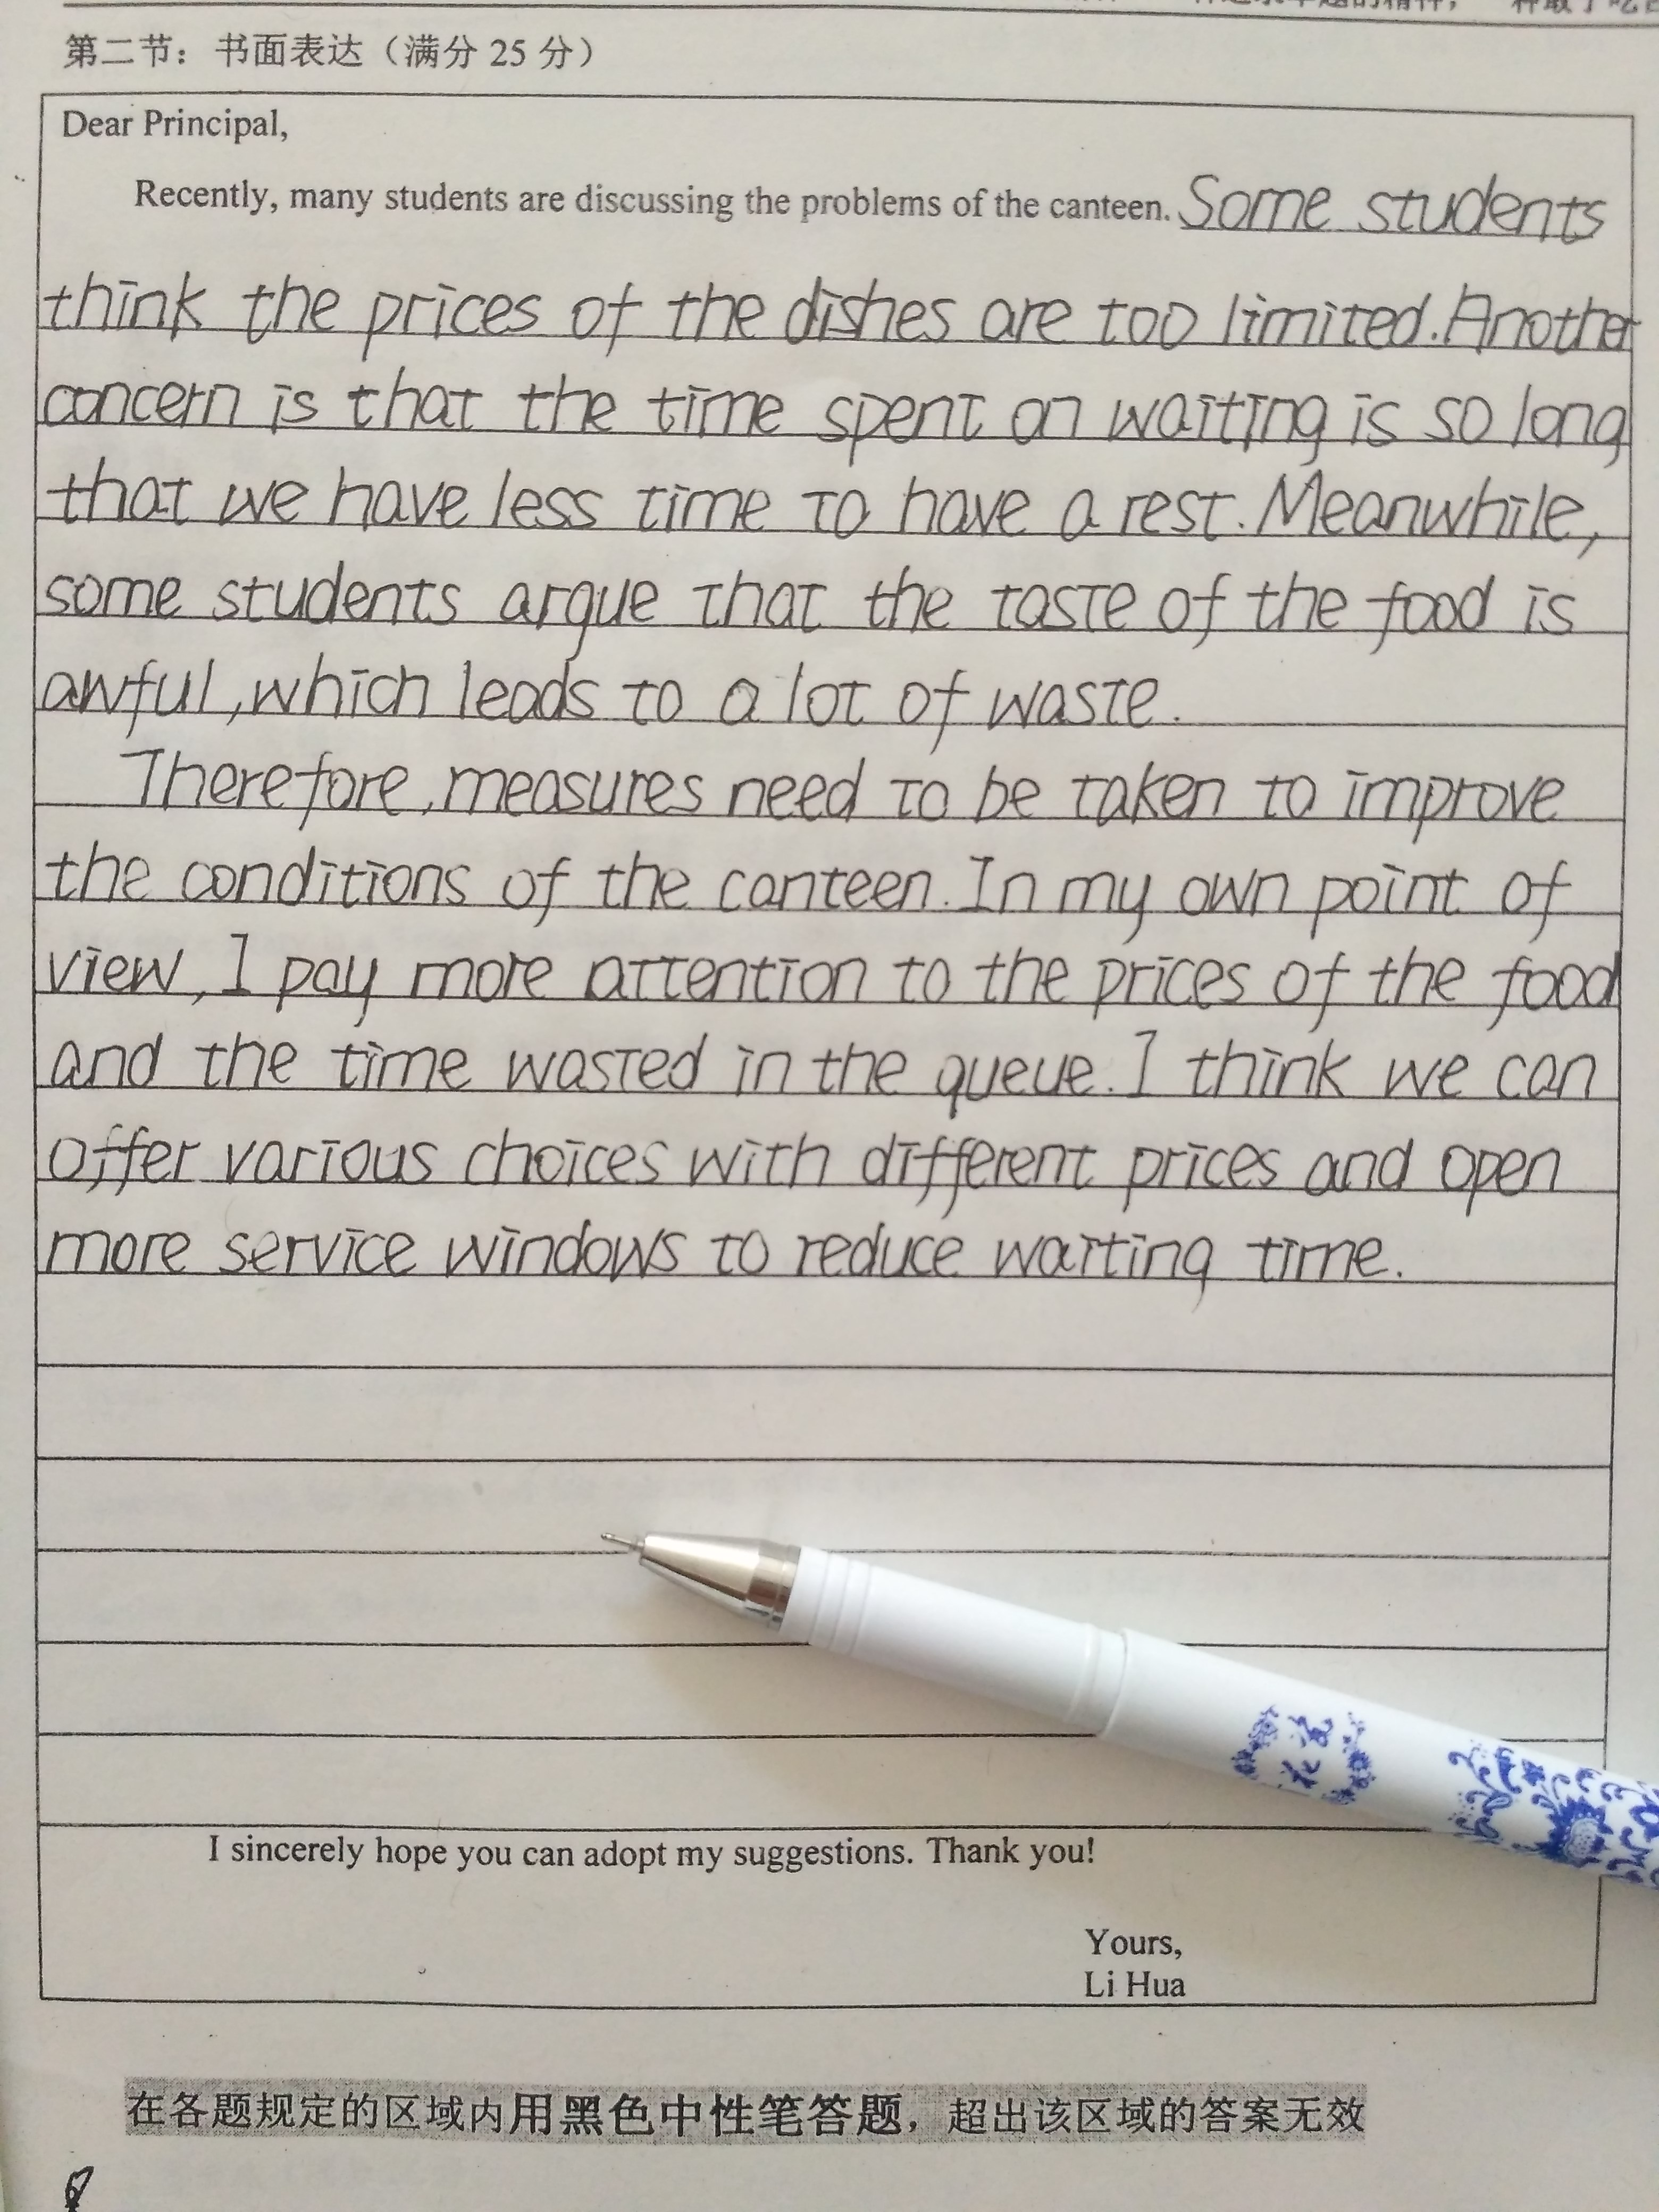 第二节：书面表达（满分 25 分）
Dear Principal,
Recently, many students are discussing the problems of the canteen. Some students
think the prices of the dishes are too limited. Another
concern is that the time spent on waiting is so long
that we have less time to have a rest. Meanwhile,
some students argue that the taste of the food is
awful, which leads to a lot of waste.
Therefore, measures need to be taken to improve
the conditions of the canteen. In my own point of
view, I pay more attention to the prices of the food
and the time wasted in the queue. I think we can
offer various choices with different prices and open
more service windows to reduce waiting time.
I sincerely hope you can adopt my suggestions. Thank you!
Yours,
Li Hua
在各题规定的区域内用黑色中性笔答题，超出该区域的答案无效